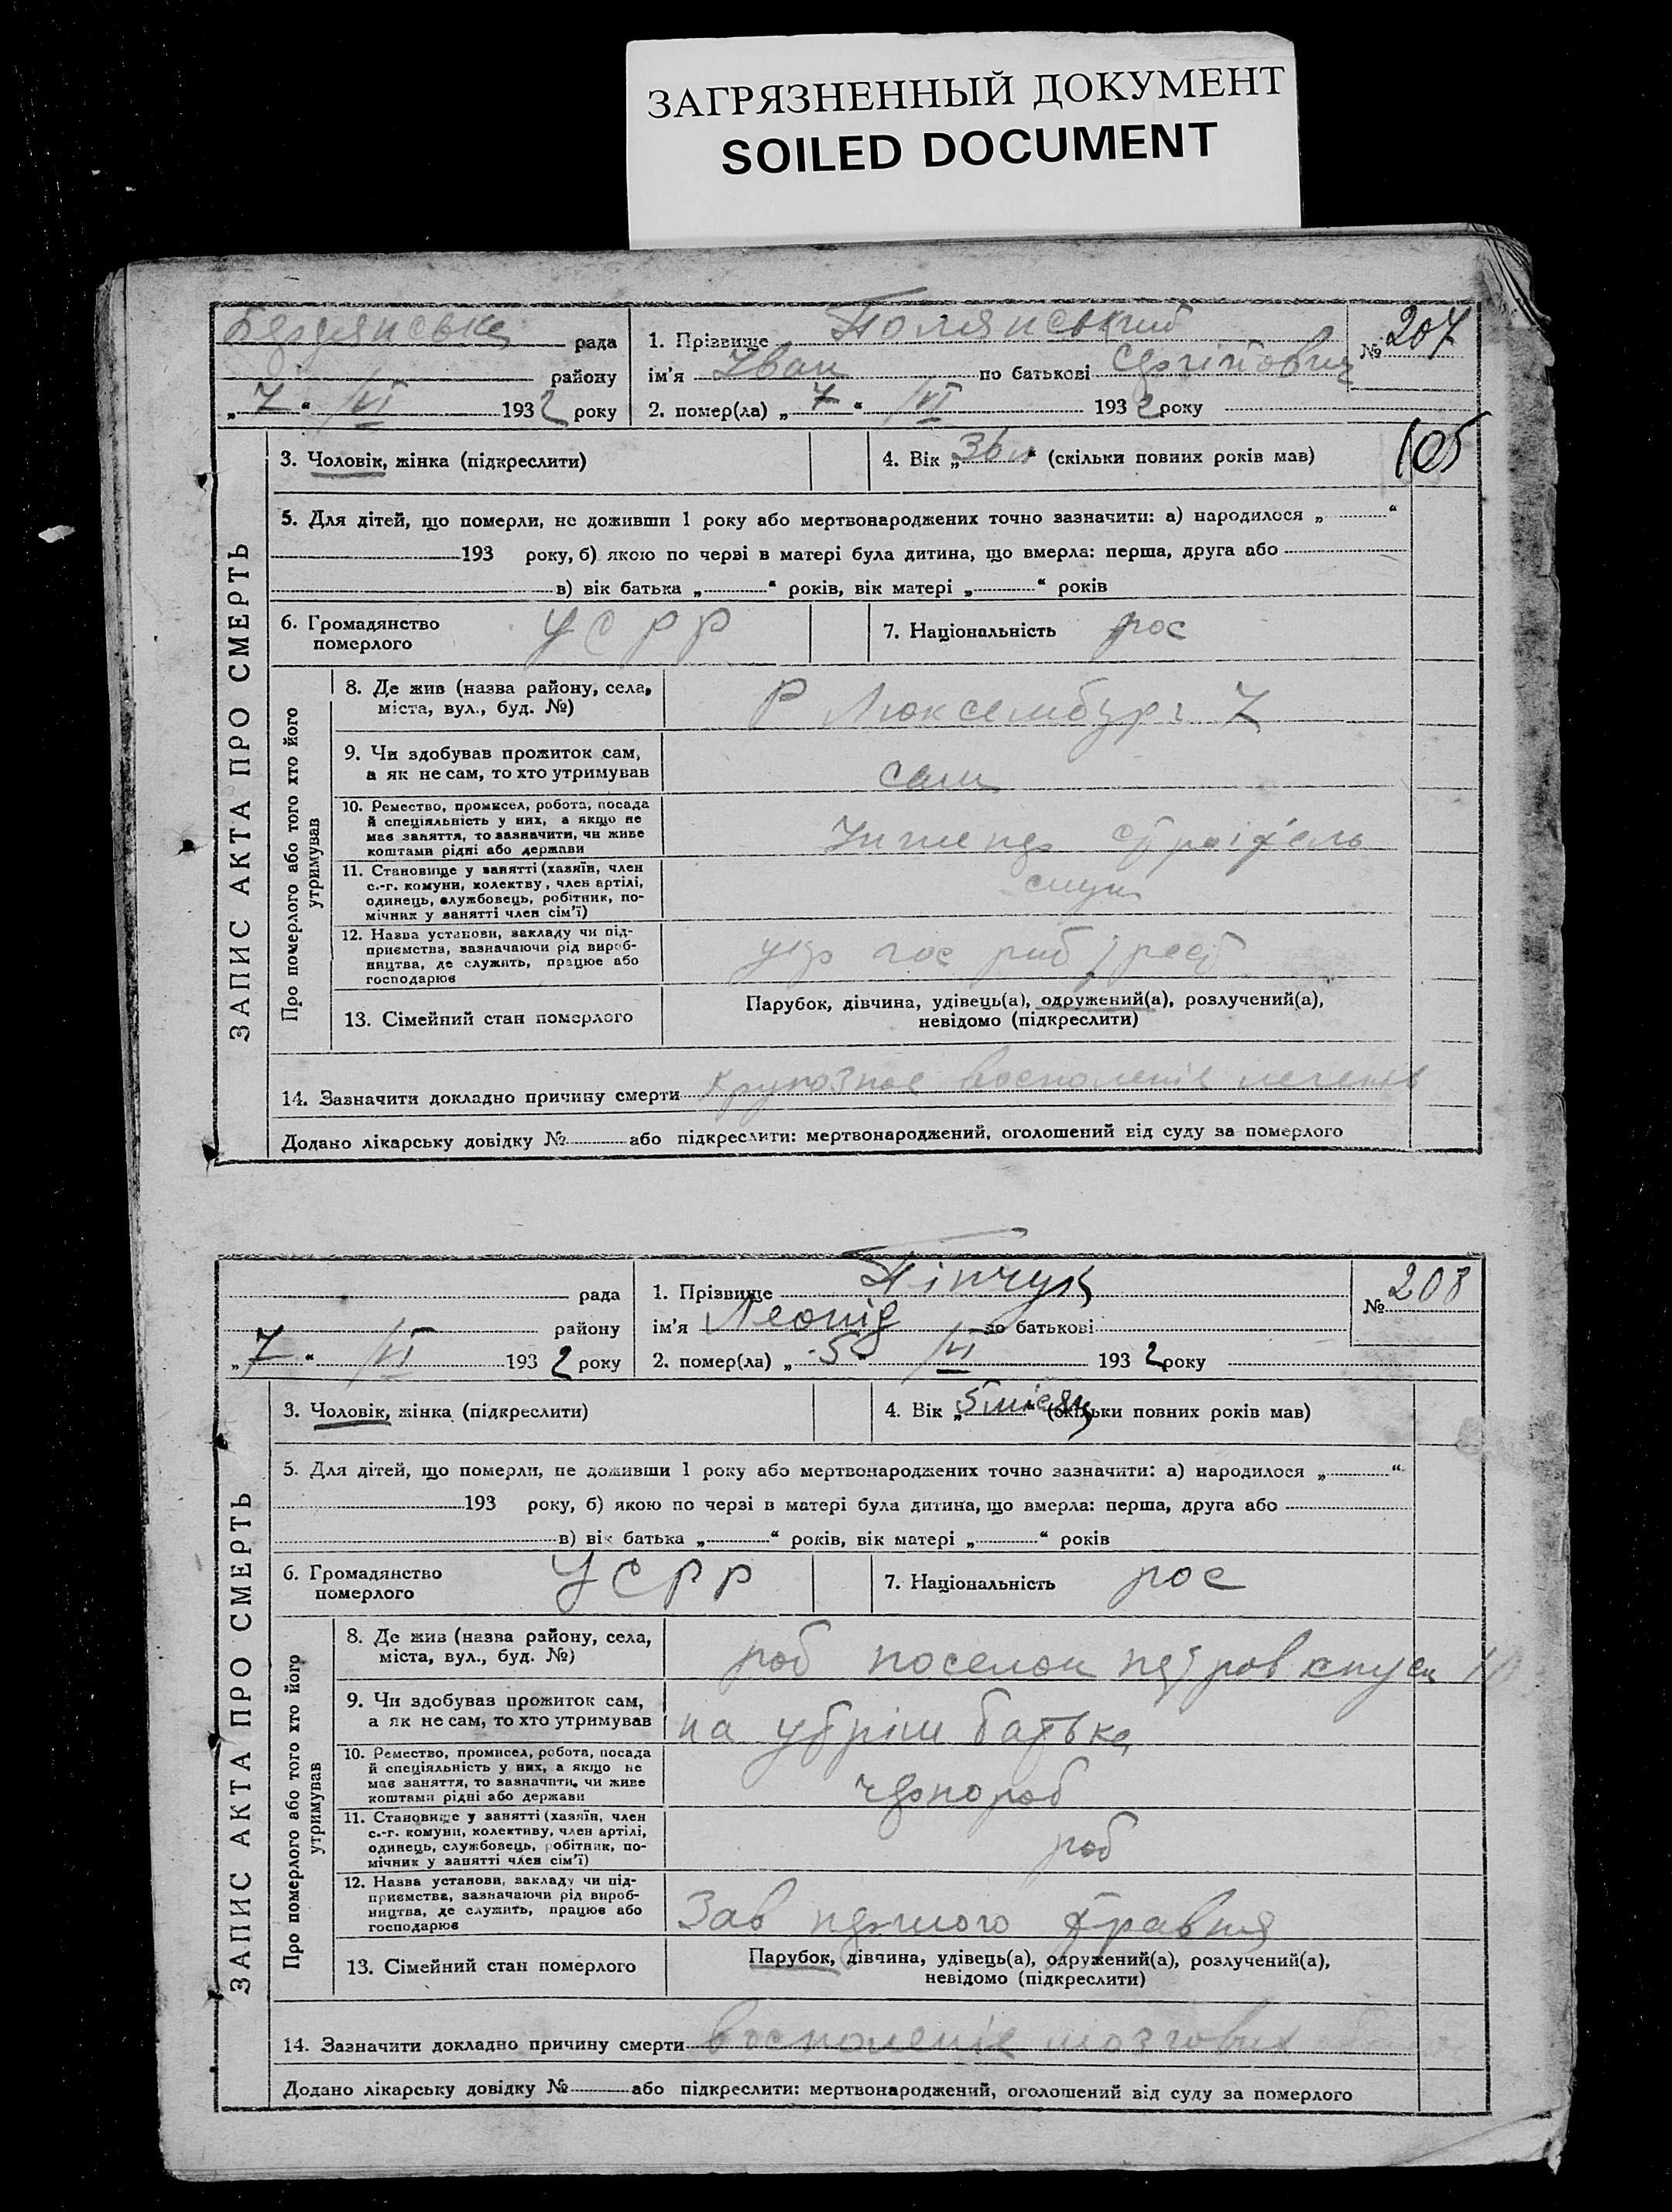 ЗАГРЯЗНЕННЫЙ ДОКУМЕНТ
SOILED DOCUMENT
Бердянська рада
району
„7“ /VI 1932 року
1. Прізвище Полянський
ім'я Іван по батькові Сергійович
2. помер(ла) „7“ /VI 1932 року
№ 207
105
ЗАПИС АКТА ПРО СМЕРТЬ
3. Чоловік, жінка (підкреслити)
4. Вік „36 л“ (скільки повних років мав)
5. Для дітей, що померли, не доживши 1 року або мертвонароджених точно зазначити: а) народилося „ “
193 року, б) якою по черві в матері була дитина, що вмерла: перша, друга або
в) вік батька „ “ років, вік матері „ “ років
6. Громадянство
померлого
УСРР
7. Національність рос
Про померлого або того хто його
утримував
8. Де жив (назва району, села,
міста, вул., буд. №)
Р Люксембург 7
9. Чи здобував прожиток сам,
а як не сам, то хто утримував
сам
10. Ремество, промисел, робота, посада
й спеціяльність у них, а якщо не
має заняття, то зазначити, чи живе
коштами рідні або держави
Інженер строітель
11. Становище у занятті (хазяїн, член
с.-г. комуни, колектву, член артілі,
одинець, службовець, робітник, по-
мічник у занятті член сім'ї)
служ
12. Назва установи, закладу чи під-
приємства, зазначаючи рід вироб-
ництва, де служить, працює або
господарює
укр гос риб трест
13. Сімейний стан померлого
Парубок, дівчина, удівець(а), одружений(а), розлучений(а),
невідомо (підкреслити)
14. Зазначити докладно причину смерти крупозное восполеніе
Додано лікарську довідку № або підкреслити: мертвонароджений, оголошений від суду за померлого
рада
району
„7“ /VI 1932 року
1. Прізвище Пінчук
ім'я Леонід по батькові
2. помер(ла) „5“ /VI 1932 року
№ 208
ЗАПИС АКТА ПРО СМЕРТЬ
3. Чоловік, жінка (підкреслити)
4. Вік „5 місяц“ (скільки повних років мав)
5. Для дітей, що померли, не доживши 1 року або мертвонароджених точно зазначити: а) народилося „ “
193 року, б) якою по черзі в матері була дитина, що вмерла: перша, друга або
в) вік батька „ “ років, вік матері „ “ років
6. Громадянство
померлого
УСРР
7. Національність рос
Про померлого або того хто його
утримував
8. Де жив (назва району, села,
міста, вул., буд. №)
роб поселок
9. Чи здобував прожиток сам,
а як не сам, то хто утримував
на утрім батька
10. Ремество, промисел, робота, посада
й спеціяльність у них, а якщо не
має заняття, то зазначити, чи живе
коштами рідні або держави
чернороб
11. Становище у занятті (хазяїн, член
с.-г. комуни, колективу, член артілі,
одинець, службовець, робітник, по-
мічник у занятті член сім'ї)
роб
12. Назва установи, закладу чи під-
приємства, зазначаючи рід вироб-
ництва, де служить, працює або
господарює
Зав першого травня
13. Сімейний стан померлого
Парубок, дівчина, удівець(а), одружений(а), розлучений(а),
невідомо (підкреслити)
14. Зазначити докладно причину смерти восполеніе мозгових
Додано лікарську довідку № або підкреслити: мертвонароджений, оголошений від суду за померлого